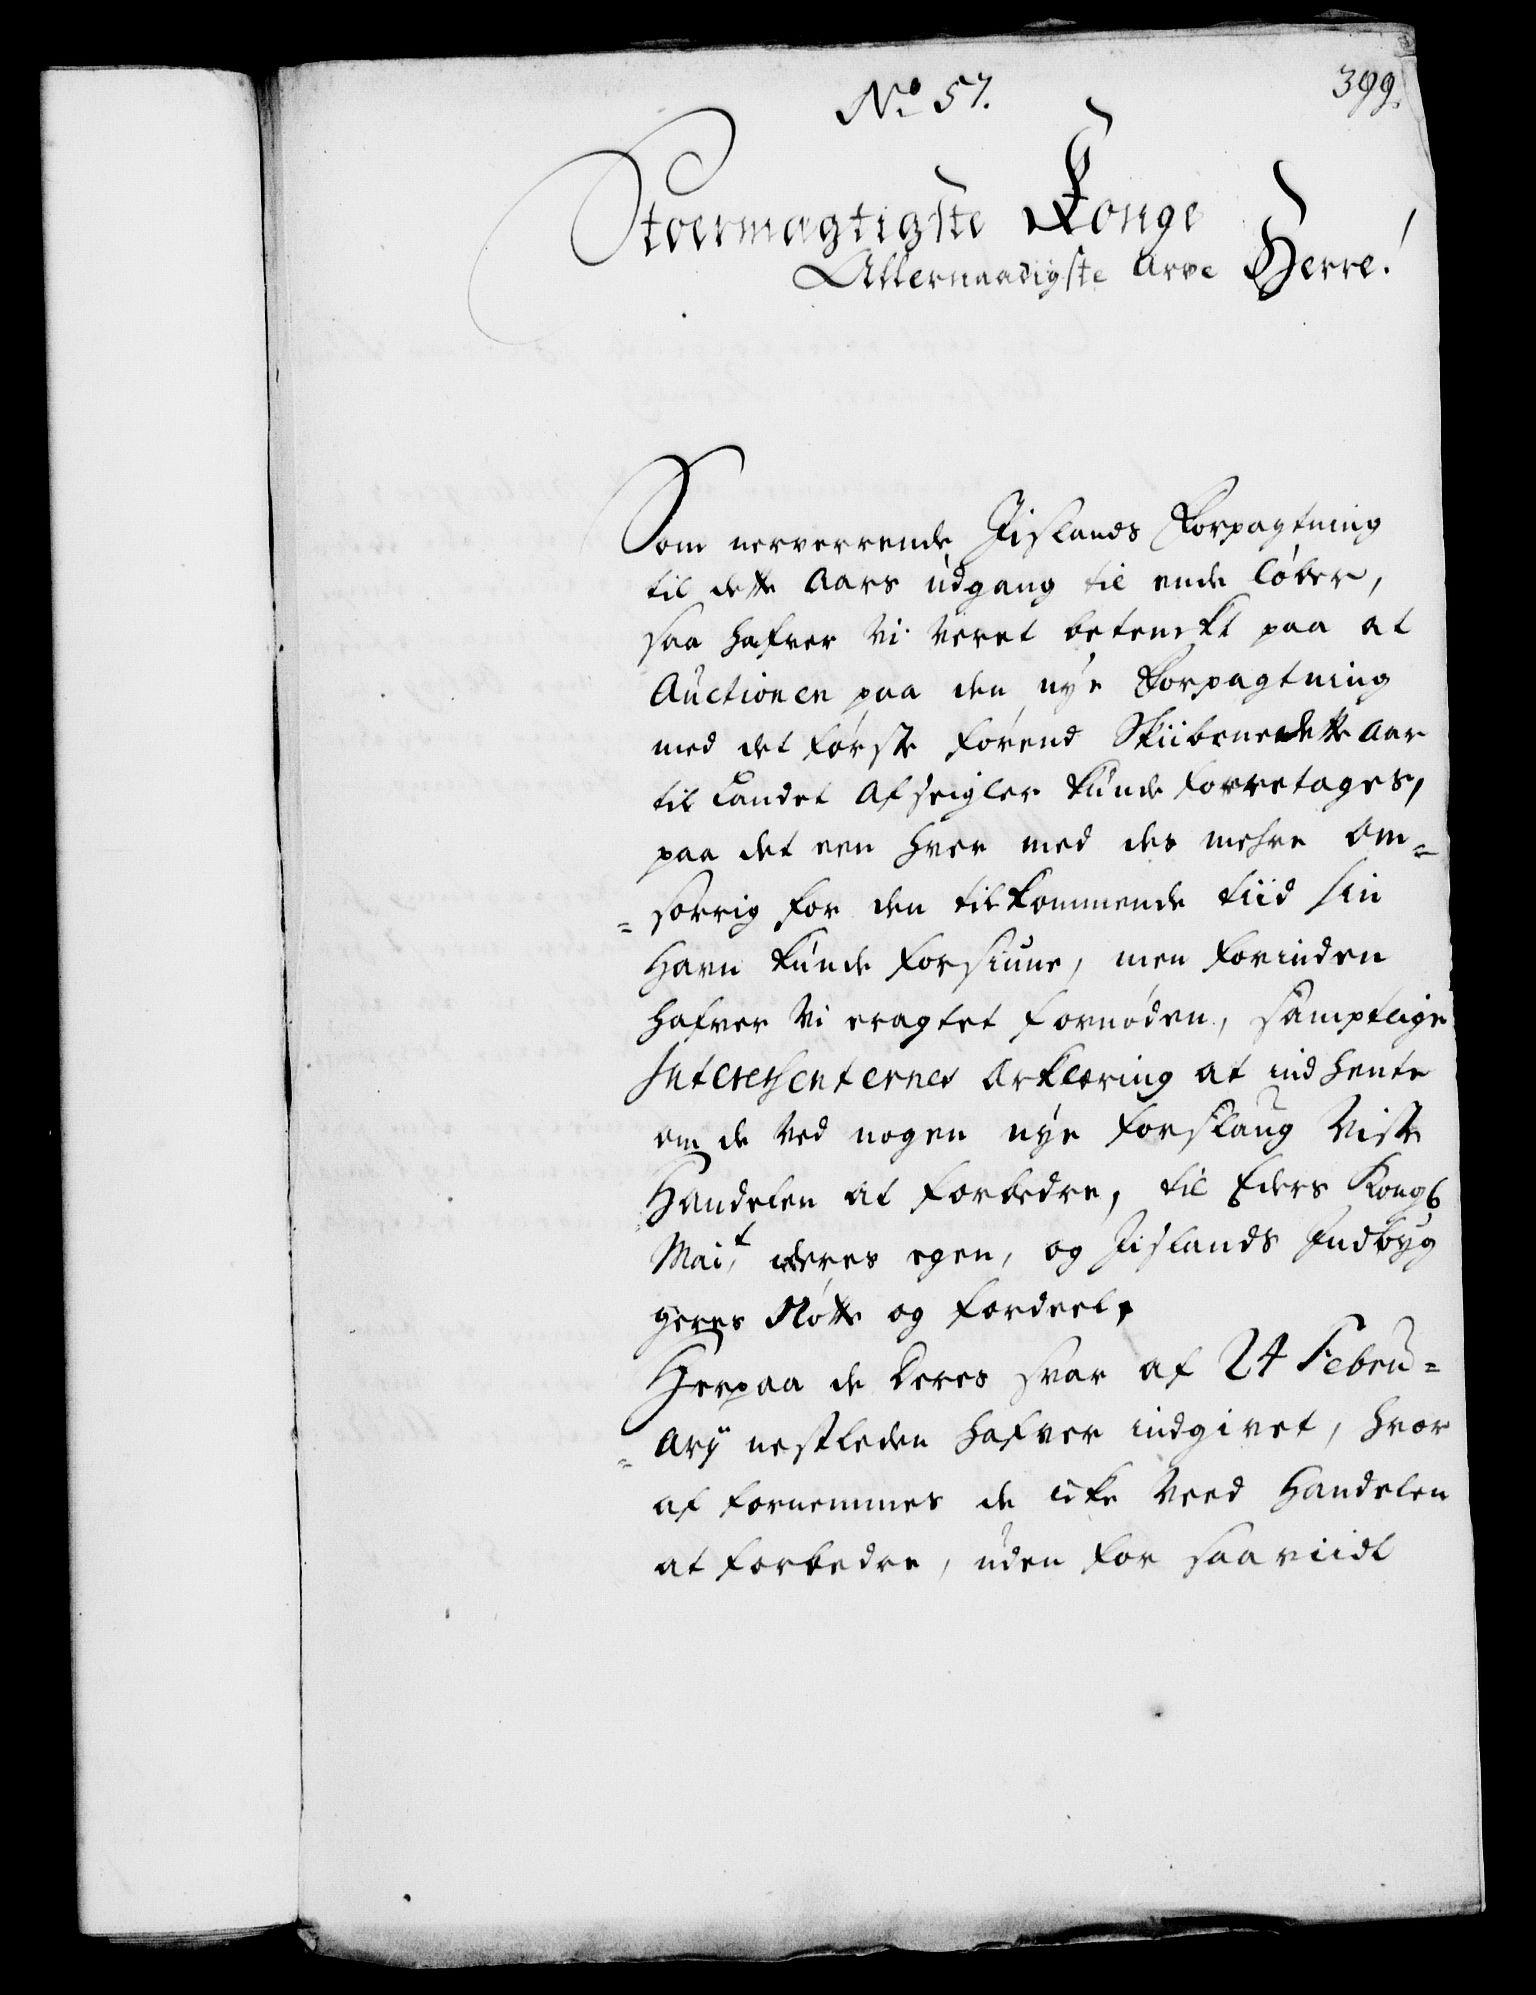 No 57.
399.
Stoermægtigste Konge
Allernaadigste Arve Herre!
Som nerverrende Jislands Forpagtning
til dette Aars udgang til ende løber,
saa hafver Vi veret betenckt paa at
Auctionen paa den nye Forpagtning
med det første førend Skiibene dette Aar
til Landet Afseigler kunde forretages,
paa det een hver med des mehre om=
=sorrig for den tilkommende tiid sin
Havn kunde forsiune, men forinden
hafver Vi eragtet fornøden, samptlige
Interessenternes Erklæring at indhente
om de ved nogen nye forslaug viste
Handelen at forbedre, til Eders Kongl
Mait, deres egen, og Jislands Indbyg
geres Nøtte og fordeel,
Herpaa de deres svar af 24 Febru=
=arij nestleden hafver indgivet, hvor
af fornemmes de icke veed Handelen
at forbedre, uden for saaviidt